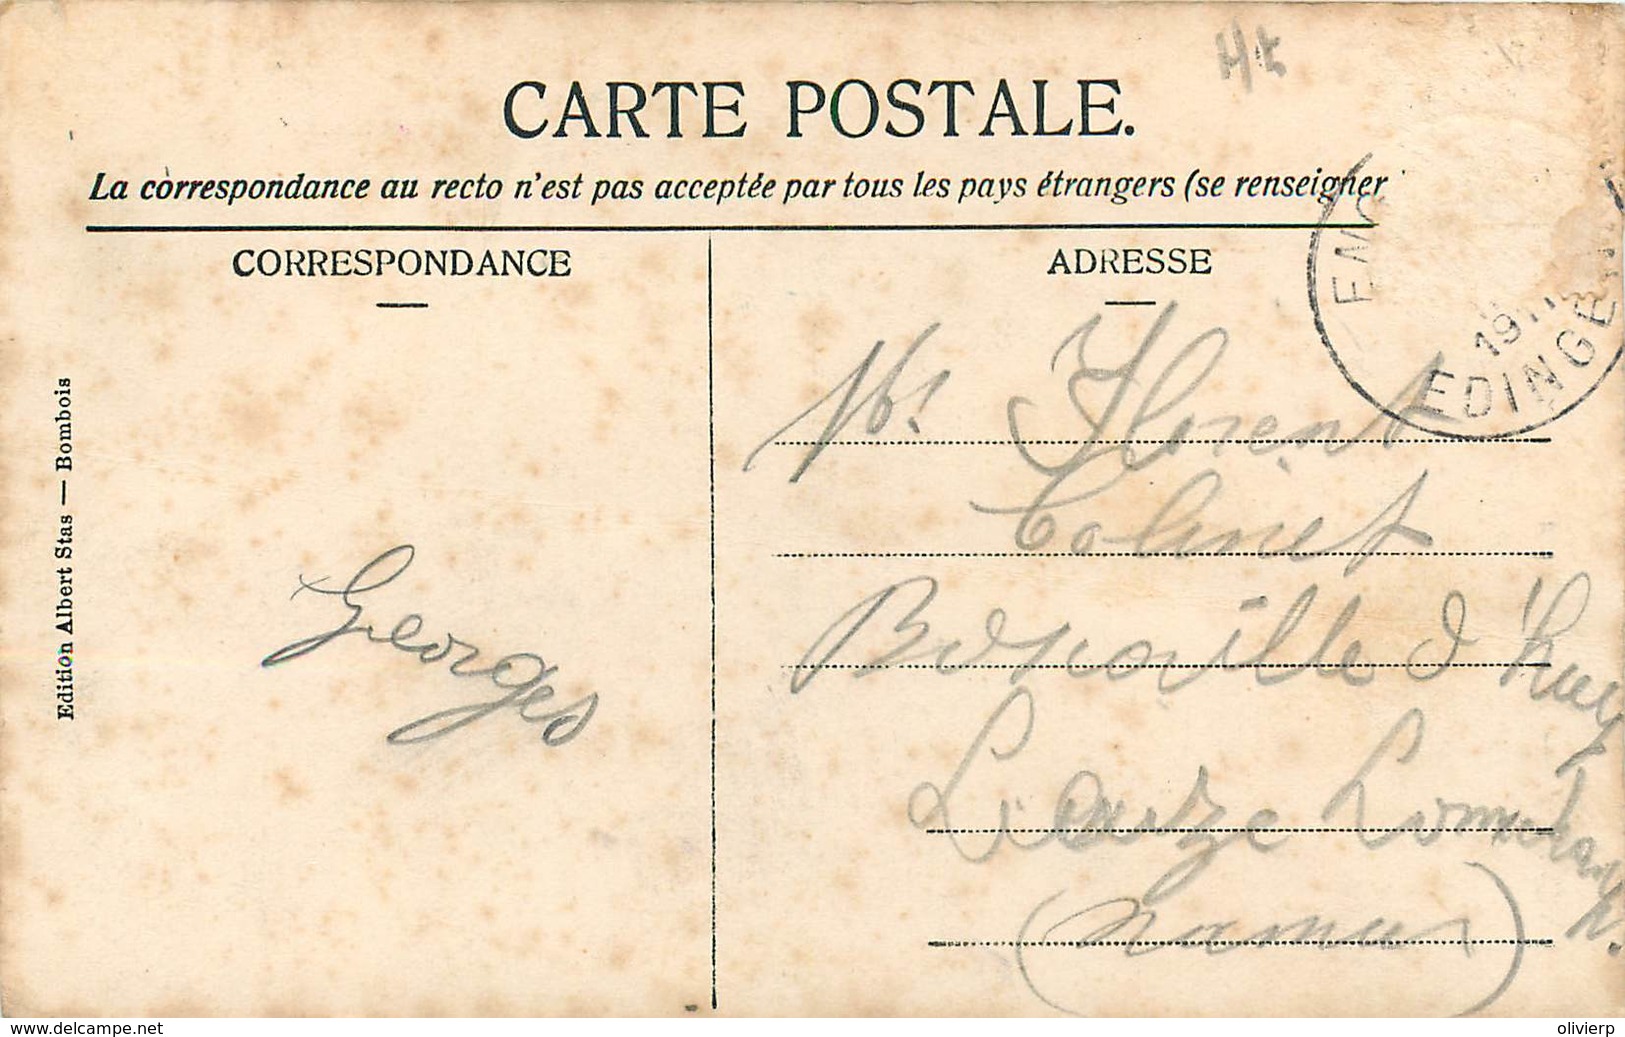 Ht
CARTE POSTALE.
La correspondance au recto n'est pas acceptée par tous les pays étrangers (se renseigner
CORRESPONDANCE
ADRESSE
EDINGE
Edition Albert Stas — Bombois
Georges
Florent
Colinet
d'huy
(Namur)
www.delcampe.net
olivierp